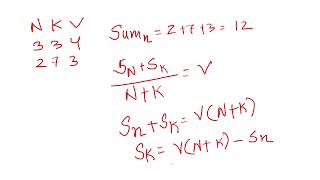 N K V
3 3 4
2 7 3
Sum_n = 2+7+3 = 12
S_N + S_K / N+K = V
S_n + S_K = V(N+K)
S_K = V(N+K) - S_n